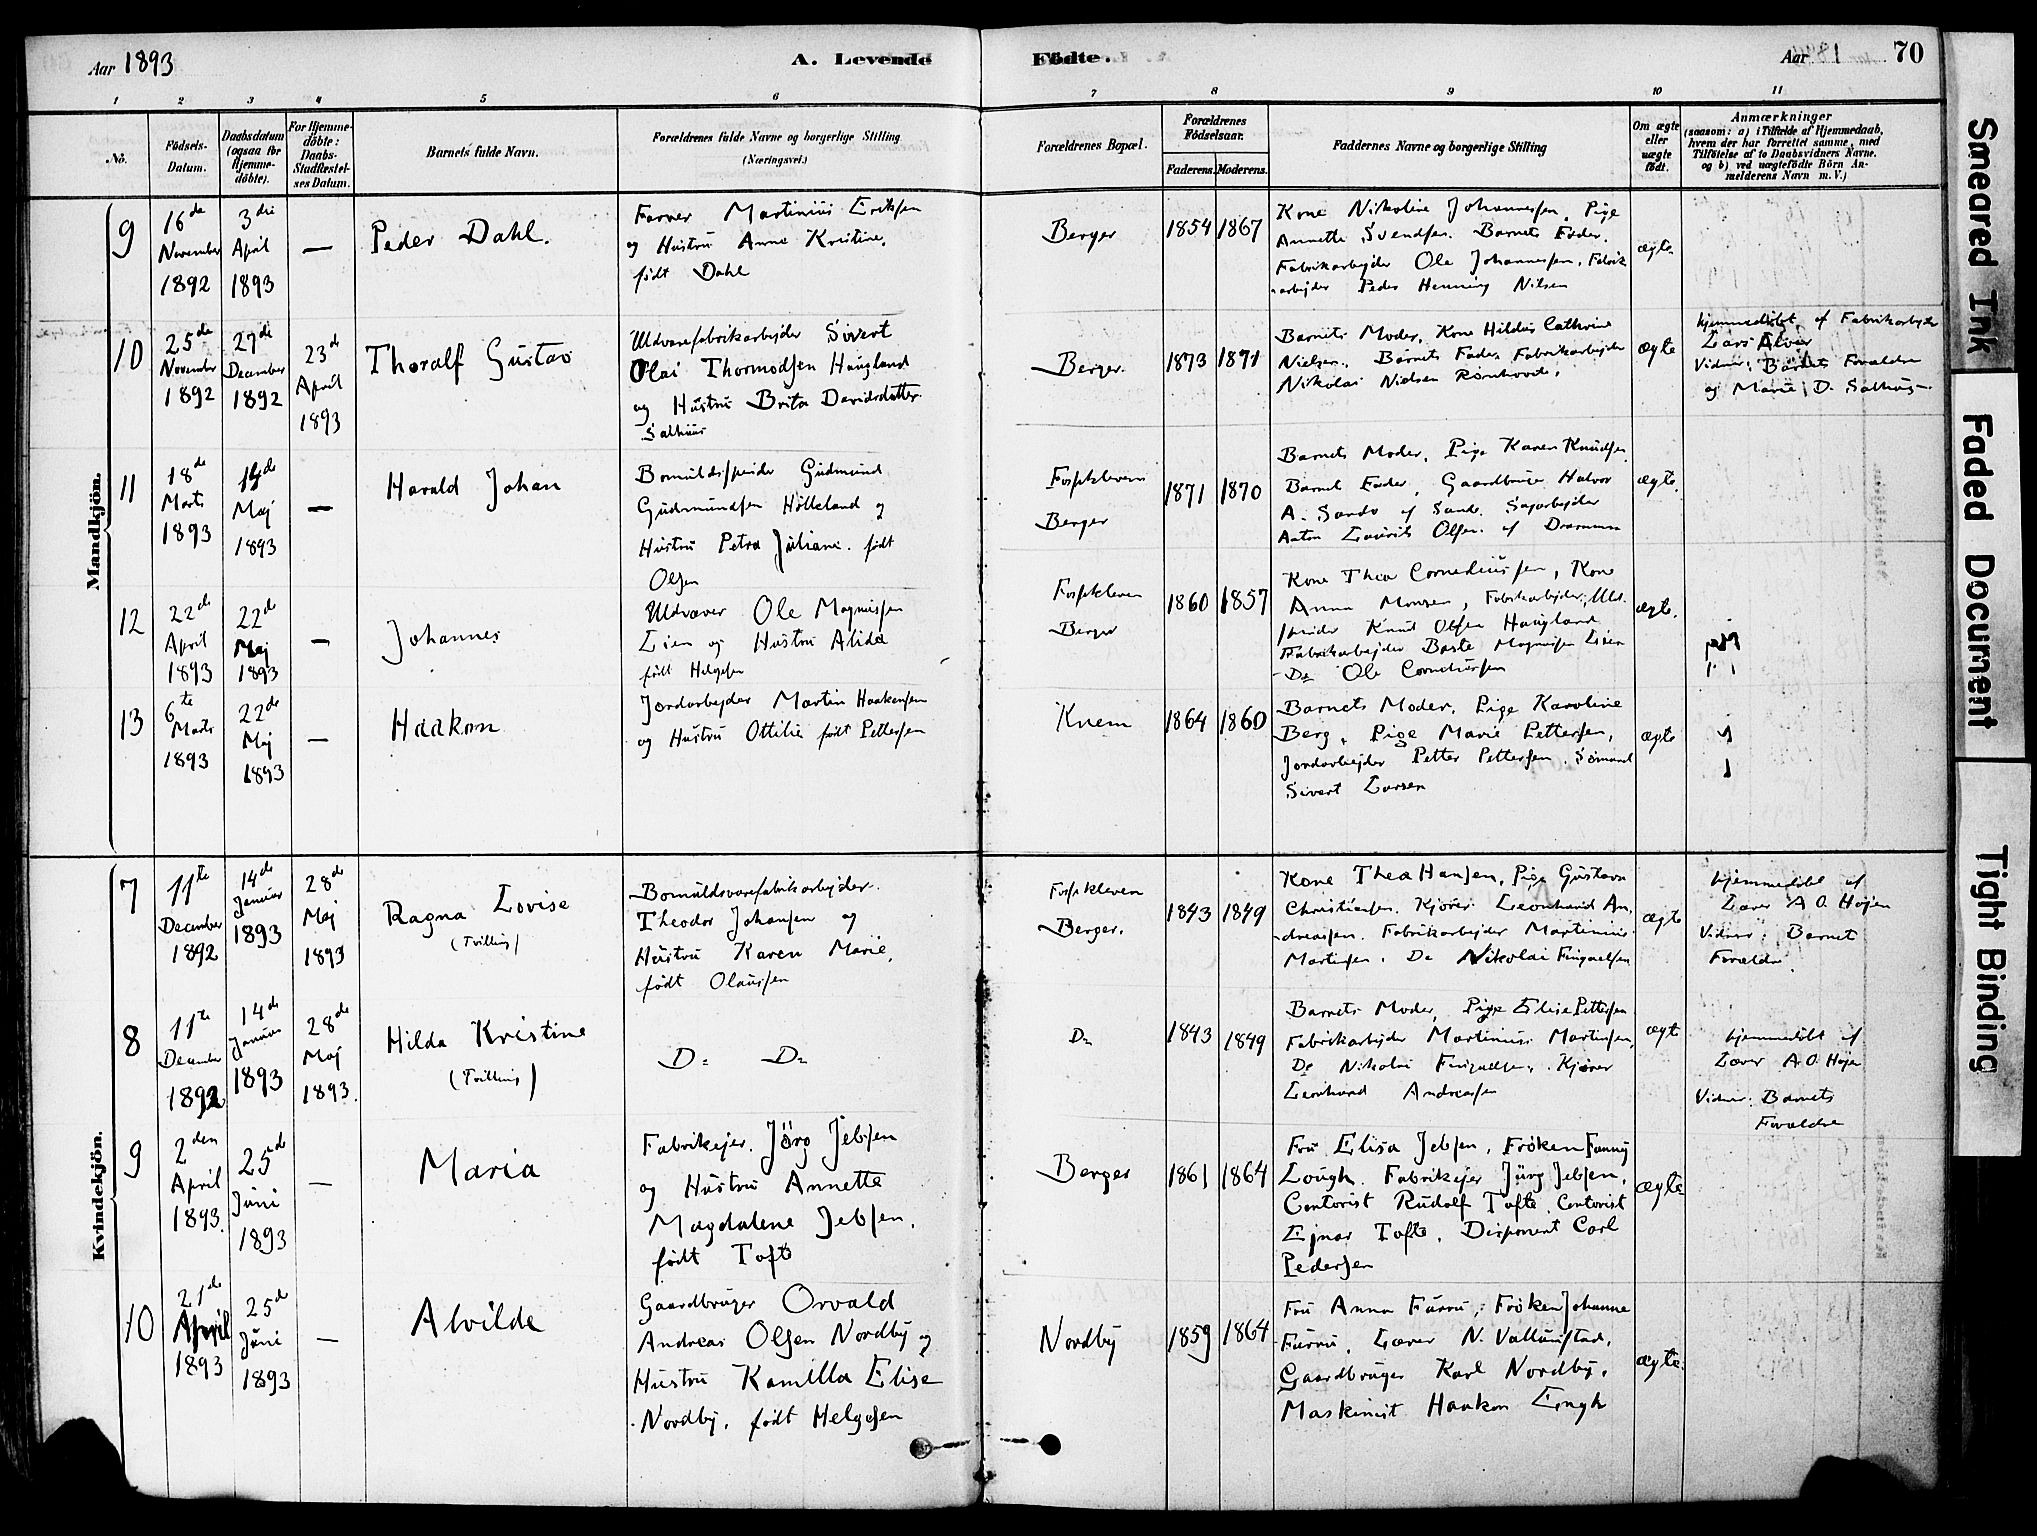 Aar 1893
A. Levende
Födte.
Aar
70
1 2 3 4 5 6 7 8 9 10 11
No.
Födsels-
Datum.
Daabsdatum
(ogsaa for
Hjemme-
döbte).
For Hjemme-
döbte:
Daabs-
Stadfæstel-
ses Datum.
Barnets fulde Navn.
Forældrenes fulde Navne og borgerlige Stilling
(Næringsvei.)
Forældrenes Bopæl.
Forældrenes
Födselsaar.
Faderens. Moderens.
Faddernes Navne og borgerlige Stilling
Om ægte
eller
uægte
födt.
Anmærkninger
(saasom: a) i Tilfælde af Hjemmedaab,
hvem der har forrettet samme, med
Tilföielse af to Daabsvidners Navne.
og b) ved uægtefödte Börn An-
melderens Navn m. V.)
Mandkjön.
9
16de
November
1892
3die
April
1893
—
Peder Dahl.
Farver Martinius Eriksen
og Hustru Anna Kristine,
født Dahl
Berger
1854 1867
Kone Nikoline Johannessen, Pige
Annette Svendsen. Barnets Fader.
Fabrikarbejder Ole Johannessen. Fabrik
arbejder Peder Henning Nilsen
ægte
10
25de
November
1892
27de
December
1892
23de
April
1893
Thoralf Gustav
Uldvarefabrikarbejder Sivert
Olai Thormodsen Haugland
og Hustru Brita Davidsdatter
Salhuus
Berger.
1873 1871
Barnets Moder, Kone Hilda Cathrine
Nielsen. Barnets Fader Fabrikarbejder
Nikolai Nielsen
ægte
hjemmedøbt af Fabrikarbejder
Lars Alver
Vidner: Barnets Forældre
og Marie D. Salhus
11
18de
Marts
1893
Maj
1893
—
Harald Johan
Bomuldsspinder Gudmund
Gudmundsen Hølleland og
Hustru Petra Juliane. født
Olsen
Fossekleven
Berger
1871 1870
Barnets Moder, Pige Karen Knudsen
Barnets Fader, Gaardbruger Halvor
A. Sando af Sande. Sagarbejder
Anton Laurits Olsen. af Drammen
ægte.
12
22de
April
1893
22de
Maj
1893
—
Johannes
Uldvæver Ole Magnussen
Lien og Hustru Alida
født Helgesen
Fossekleven
Berger
1860 1857
Kone Thea Corneliussen, Kone
Anna Monsen, Fabrikarbejder, Uld.
spinder Knud Olsen Haugland
Fabrikarbejder Magnussen Lien
Do Ole Corneliussen
ægte.
13
6te
Marts
1893
22de
Maj
1893
—
Haakon
Jordarbejder Martin Haakensen
og Hustru Ottilie født Pettersen
Knem
1864 1860
Barnets Moder, Pige Karoline
Berg, Pige Marie Pettersen,
Jordarbejder Petter Pettersen. Sømand
Sivert Larsen
ægte
Kvindekjön.
7
11te
December
1892
14de
Januar
1893
28de
Maj
1893
Ragna Lovise
(Tvilling)
Bomuldsvarefabrikarbejder.
Theodor Johansen og
Hustru Karen Marie,
født Olaussen
Fossekleven
Berger.
1843 1849
Kone Thea Hansen, Pige Gustava
Christiansen. Kjører Leonhard An-
dreassen. Fabrikarbejder Martinius
Martinsen. Do Nikolai
ægte
hjemmedøbt af
Lærer A O. Højen
Vidner: Barnets
Forældre.
8
11te
December
1892
14de
Januar
1893
28de
Maj
1893.
Hilda Kristine
(Tvilling)
Do Do
Do
1843 1849
Barnets Moder, Pige Elise Pettersen
Fabrikarbejder Martinius Martinsen,
Do Nikolai Kjører
Leonhard Andreassen
ægte
hjemmedøbt af
Lærer A.O. Højen
Vidner: Barnets
Forældre
9
2den
April
1893.
25de
Juni
1893
—
Maria
Fabrikejer. Jörg Jebsen
og Hustru Annette
Magdalene Jebsen.
født Tofte
Berger
1861 1864
Fru Elisa Jebsen, Frøken Fanny
Lough. Fabrikejer Jürg Jebsen,
Contorist Rudolf Tofte, Contorist
Ejnar Tofte, Disponent Carl
Pedersen
ægte
10
21de
April
1893
25de
Juni
1893
—
Alvilde
Gaardbruger Orvald
Andreas Olsen Nordby og
Hustru Kamilla Elise
Nordby, født Helgesen
Nordby
1859 1864
Fru Anna Furru, Frøken Johanne
Furru, Lærer N. Vallunstad,
Gaardbruger Karl Nordby,
Maskinist Haakon Engh
ægte.
Smeared Ink
Faded Document
Tight Binding